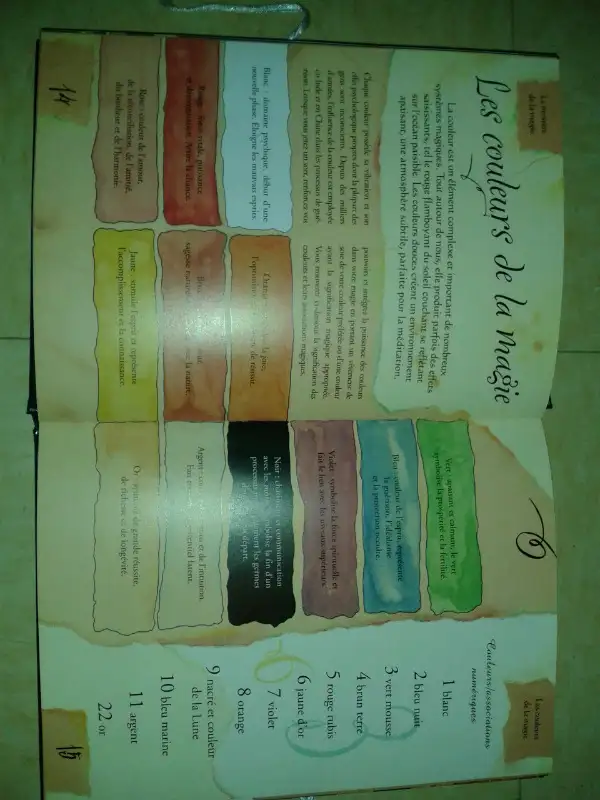 La mémoire
de la magie
Les couleurs de la magie
La couleur est un élément complexe et important de nombreux
systèmes magiques. Tout autour de nous, elle produit parfois des effets
saisissants, tel le rouge flamboyant du soleil couchant se reflétant
sur l'océan paisible. Les couleurs douces créent un environnement
apaisant, une atmosphère subtile, parfaite pour la méditation.
Chaque couleur possède sa vibration et son
effet psychologique propres dont la plupart des
gens sont inconscients. Depuis des milliers
d'années, l'influence de la couleur est employée
en Inde et en Chine dans les processus de gué-
rison. Lorsque vous jetez un sort, renforcez vos
pouvoirs et intégrez la puissance des couleurs
dans votre magie en portant un vêtement de
soie de votre couleur préférée ou d'une couleur
ayant la signification magique appropriée.
Vous trouverez ci-dessous la signification des
couleurs et leurs associations magiques.
Blanc : domaine psychique, début d'une
nouvelle phase. Éloigne les mauvais esprits.
Rouge
puissance
et détermination. Attire la chance.
Rose : couleur de l'amour,
de la réconciliation, de l'amitié,
du bonheur et de l'harmonie.
la nature.
Jaune : stimule l'esprit et représente
l'accomplissement et la connaissance.
14
Les couleurs
de la magie
Vert : apaisant et calmant, le vert
symbolise la prospérité et la fertilité.
Bleu : couleur de l'espoir, représente
la guérison, l'idéalisme
et la protection occulte.
Violet : symbolise la force spirituelle et
fait le lien avec les niveaux supérieurs.
Noir :
communication
avec les
symbolise la fin d'un
processus
les germes
départ.
Argent :
et de l'intuition.
latent.
Or :
de grande réussite,
de richesse et de longévité.
Couleurs/associations
numériques
1 blanc
2 bleu nuit
3 vert mousse
4 brun terre
5 rouge rubis
6 jaune d'or
7 violet
8 orange
9 nacré et couleur
de la Lune
10 bleu marine
11 argent
22 or
15